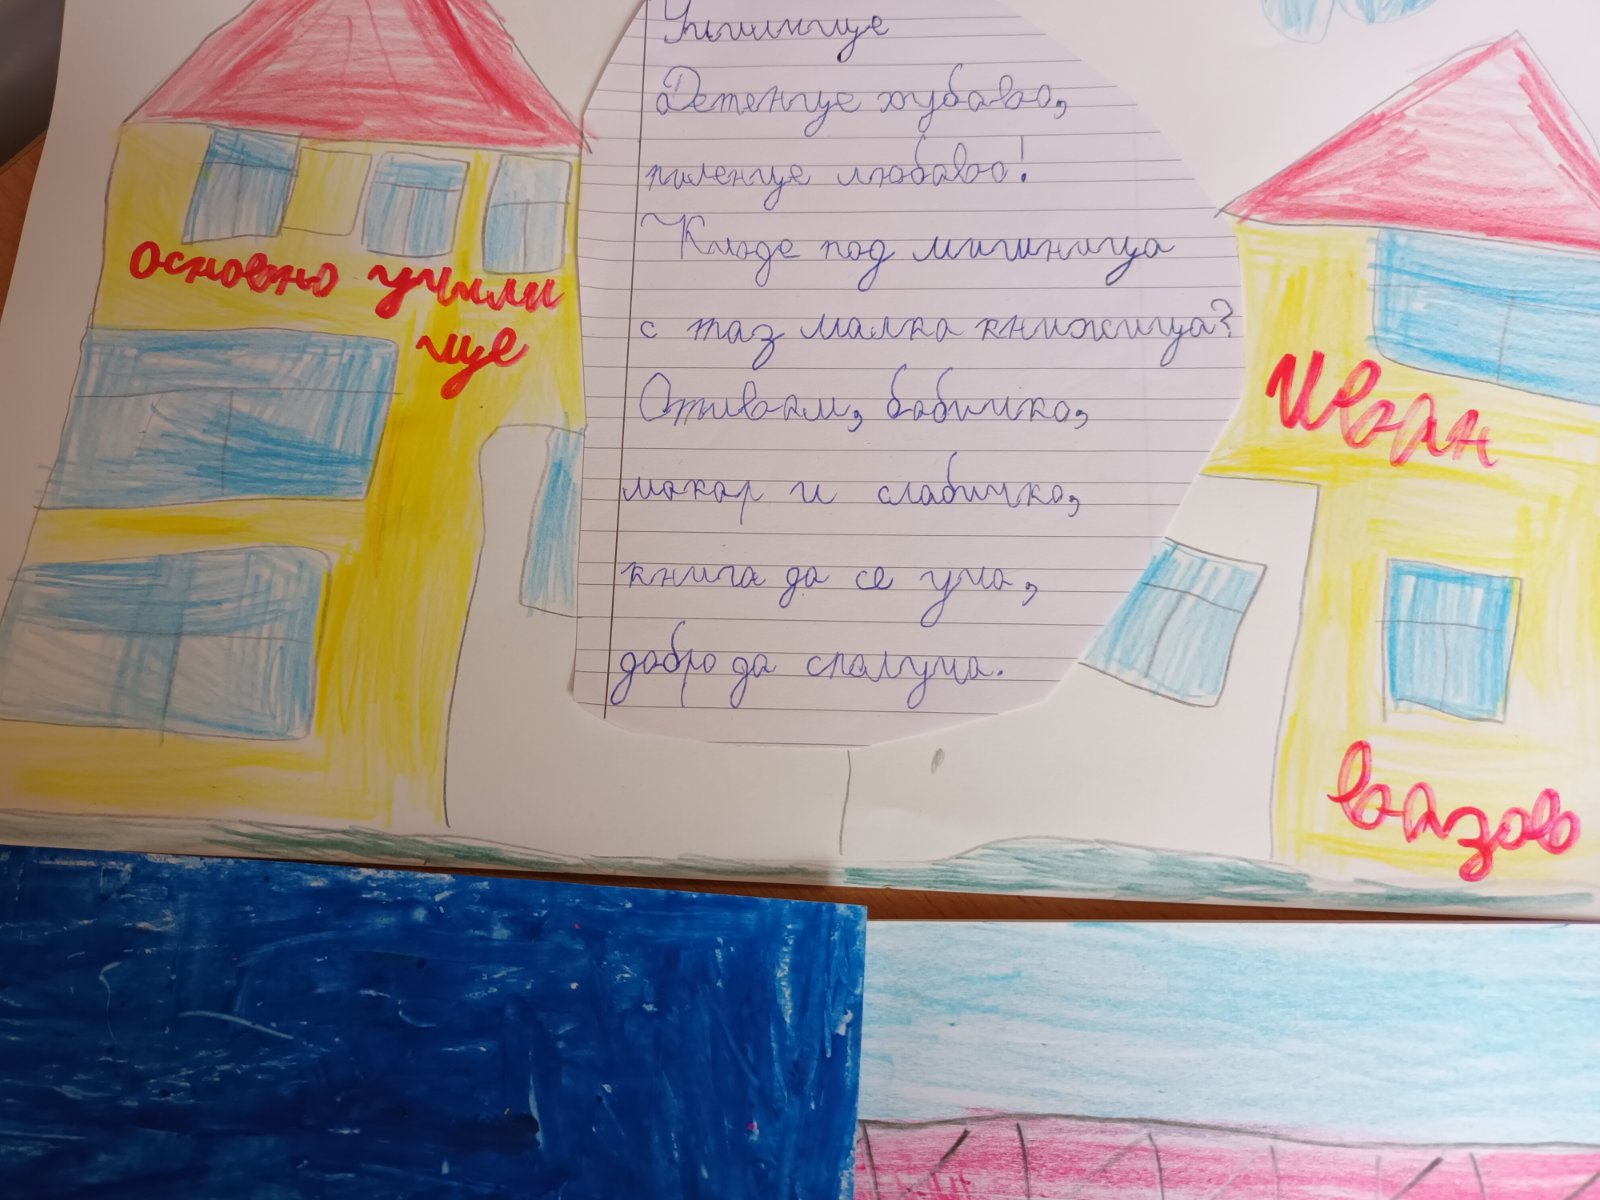 Училище
Детенце хубаво,
пиленце любаво!
Къде под мишница
с таз малка книжица?
Отивам, бабичко,
макар и слабичко,
книга да се уча,
добро да сполуча.
Основно учили
ще
Иван
вазов